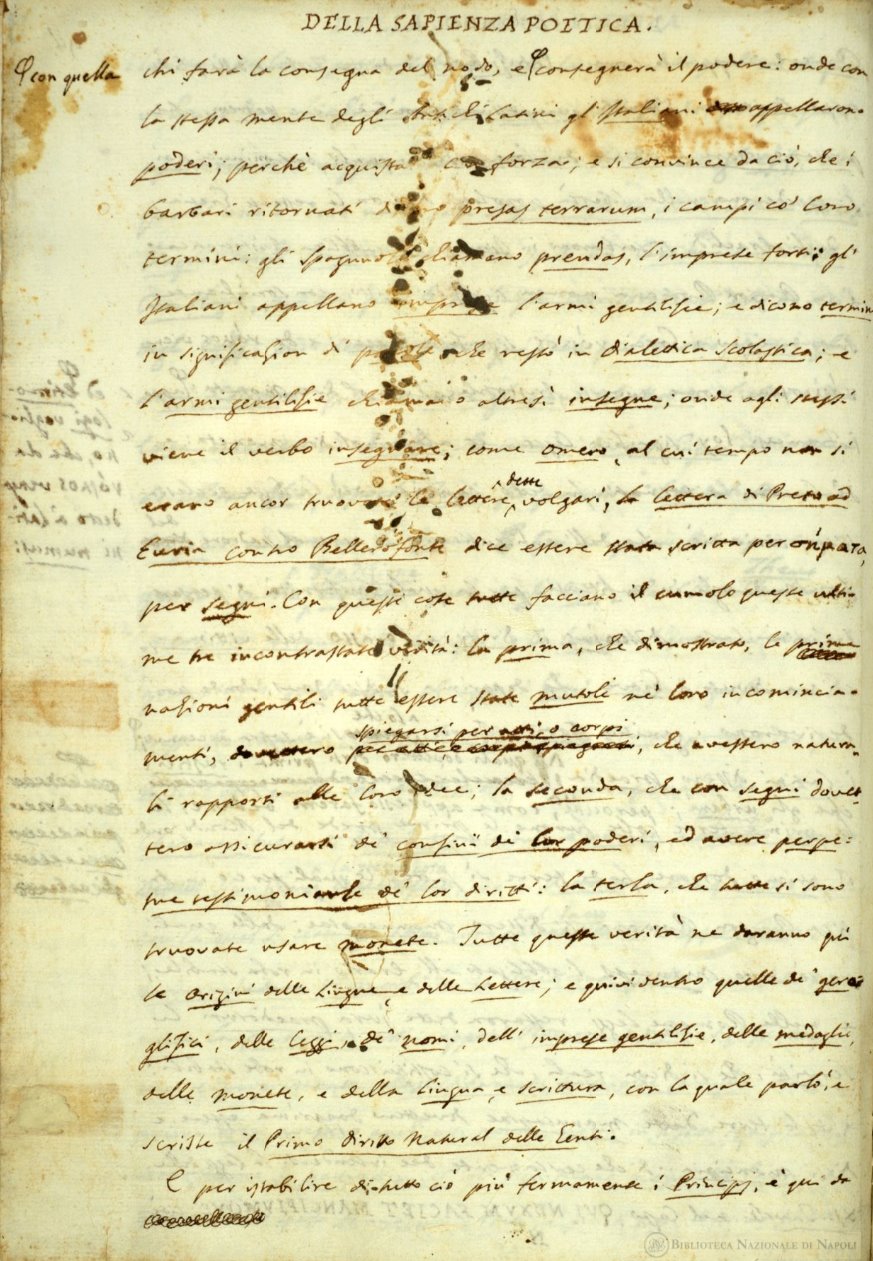 DELLA SAPIENZA POETICA.
con quella
chi farà la consegna del nodo, e consegnerà il podere: onde con
la stessa mente degli antichi Latini gl'Italiani appellaron
poderi; perchè acquistati con forza; e si convince da ciò, che i
barbari ritornati dissero presas terrarum, i campi co' loro
termini: gli Spagnuoli chiamano prendas, l'imprese forti: gl'
Italiani appellano imprese l'armi gentilizie; e dicono termini
in significazion di parole che restò in dialettica scolastica; e
l'armi gentilizie chiamano altresì insegne; onde agli stessi
viene il verbo insegnare; come Omero, al cui tempo non si
erano ancor truovate le lettere dette volgari, la lettera di Preto ad
Euria contro Bellerofonte dice essere stata scritta per σήματα,
per segni. Con queste cose tutte facciano il cumolo queste ulti-
me tre incontrastate verità: la prima, che dimostrato, le prime
nazioni gentili tutte essere state mutole ne' loro incomincia-
spiegarsi per atti, o corpi
menti, dovettero , che avessero natura-
li rapporti alle loro idee; la seconda, che con segni dovet-
tero assicurarsi de' confini de' lor poderi, ed avere perpe-
tue testimonianze de' lor diritti: la terza, che tutte si sono
truovate usare monete. Tutte queste verità ne daranno qui
le origini delle Lingue, e delle Lettere; e quivi dentro quelle de' gero-
glifici, delle leggi, de' nomi, dell'imprese gentilizie, delle medaglie,
delle monete, e della lingua, e scrittura, con la quale parlò, e
scrisse il Primo diritto Natural delle Genti.
E per istabilire di tutto ciò più fermamente i Principj, è qui da
BIBLIOTECA NAZIONALE DI NAPOLI